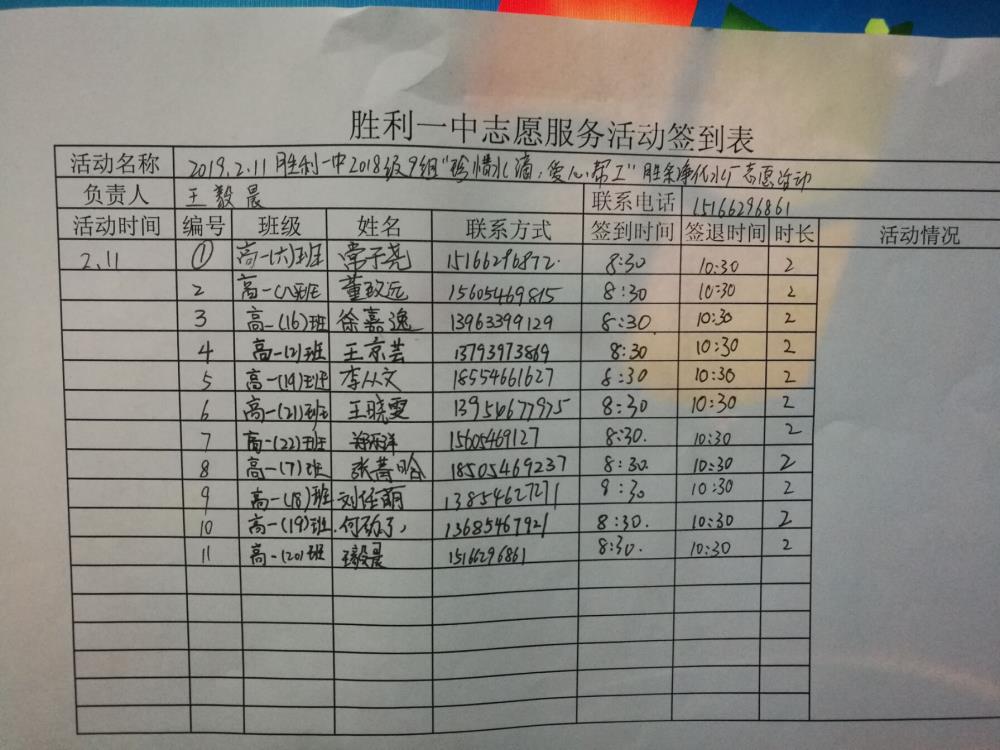 胜利一中志愿服务活动签到表
活动名称 2019.2.11 胜利一中2018级9组"珍惜水滴,爱心帮工"胜采净化水厂志愿活动
负责人 王毅晨 联系电话 15166296861
活动时间 编号 班级 姓名 联系方式 签到时间 签退时间 时长 活动情况
2.11 ① 高一(六)班 常子尧 15166296872. 8:30 10:30 2
2 高一(八)班 董致远 15605469815 8:30 10:30 2
3 高一(16)班 徐嘉逸 13963399129 8:30 10:30 2
4 高一(2)班 王京芸 13793973869 8:30 10:30 2
5 高一(19)班 李从文 18554661627 8:30 10:30 2
6 高一(21)班 王晓雯 13954677975 8:30 10:30 2
7 高一(22)班 15605469127 8:30. 10:30 2
8 高一(7)班 张菁晗 18505469237 8:30. 10:30 2
9 高一(18)班 刘任萌 13854627271 8:30 10:30 2
10 高一(19)班. 13685467921 8:30. 10:30 2
11 高一(20)班 王毅晨 15166296861 8:30. 10:30 2